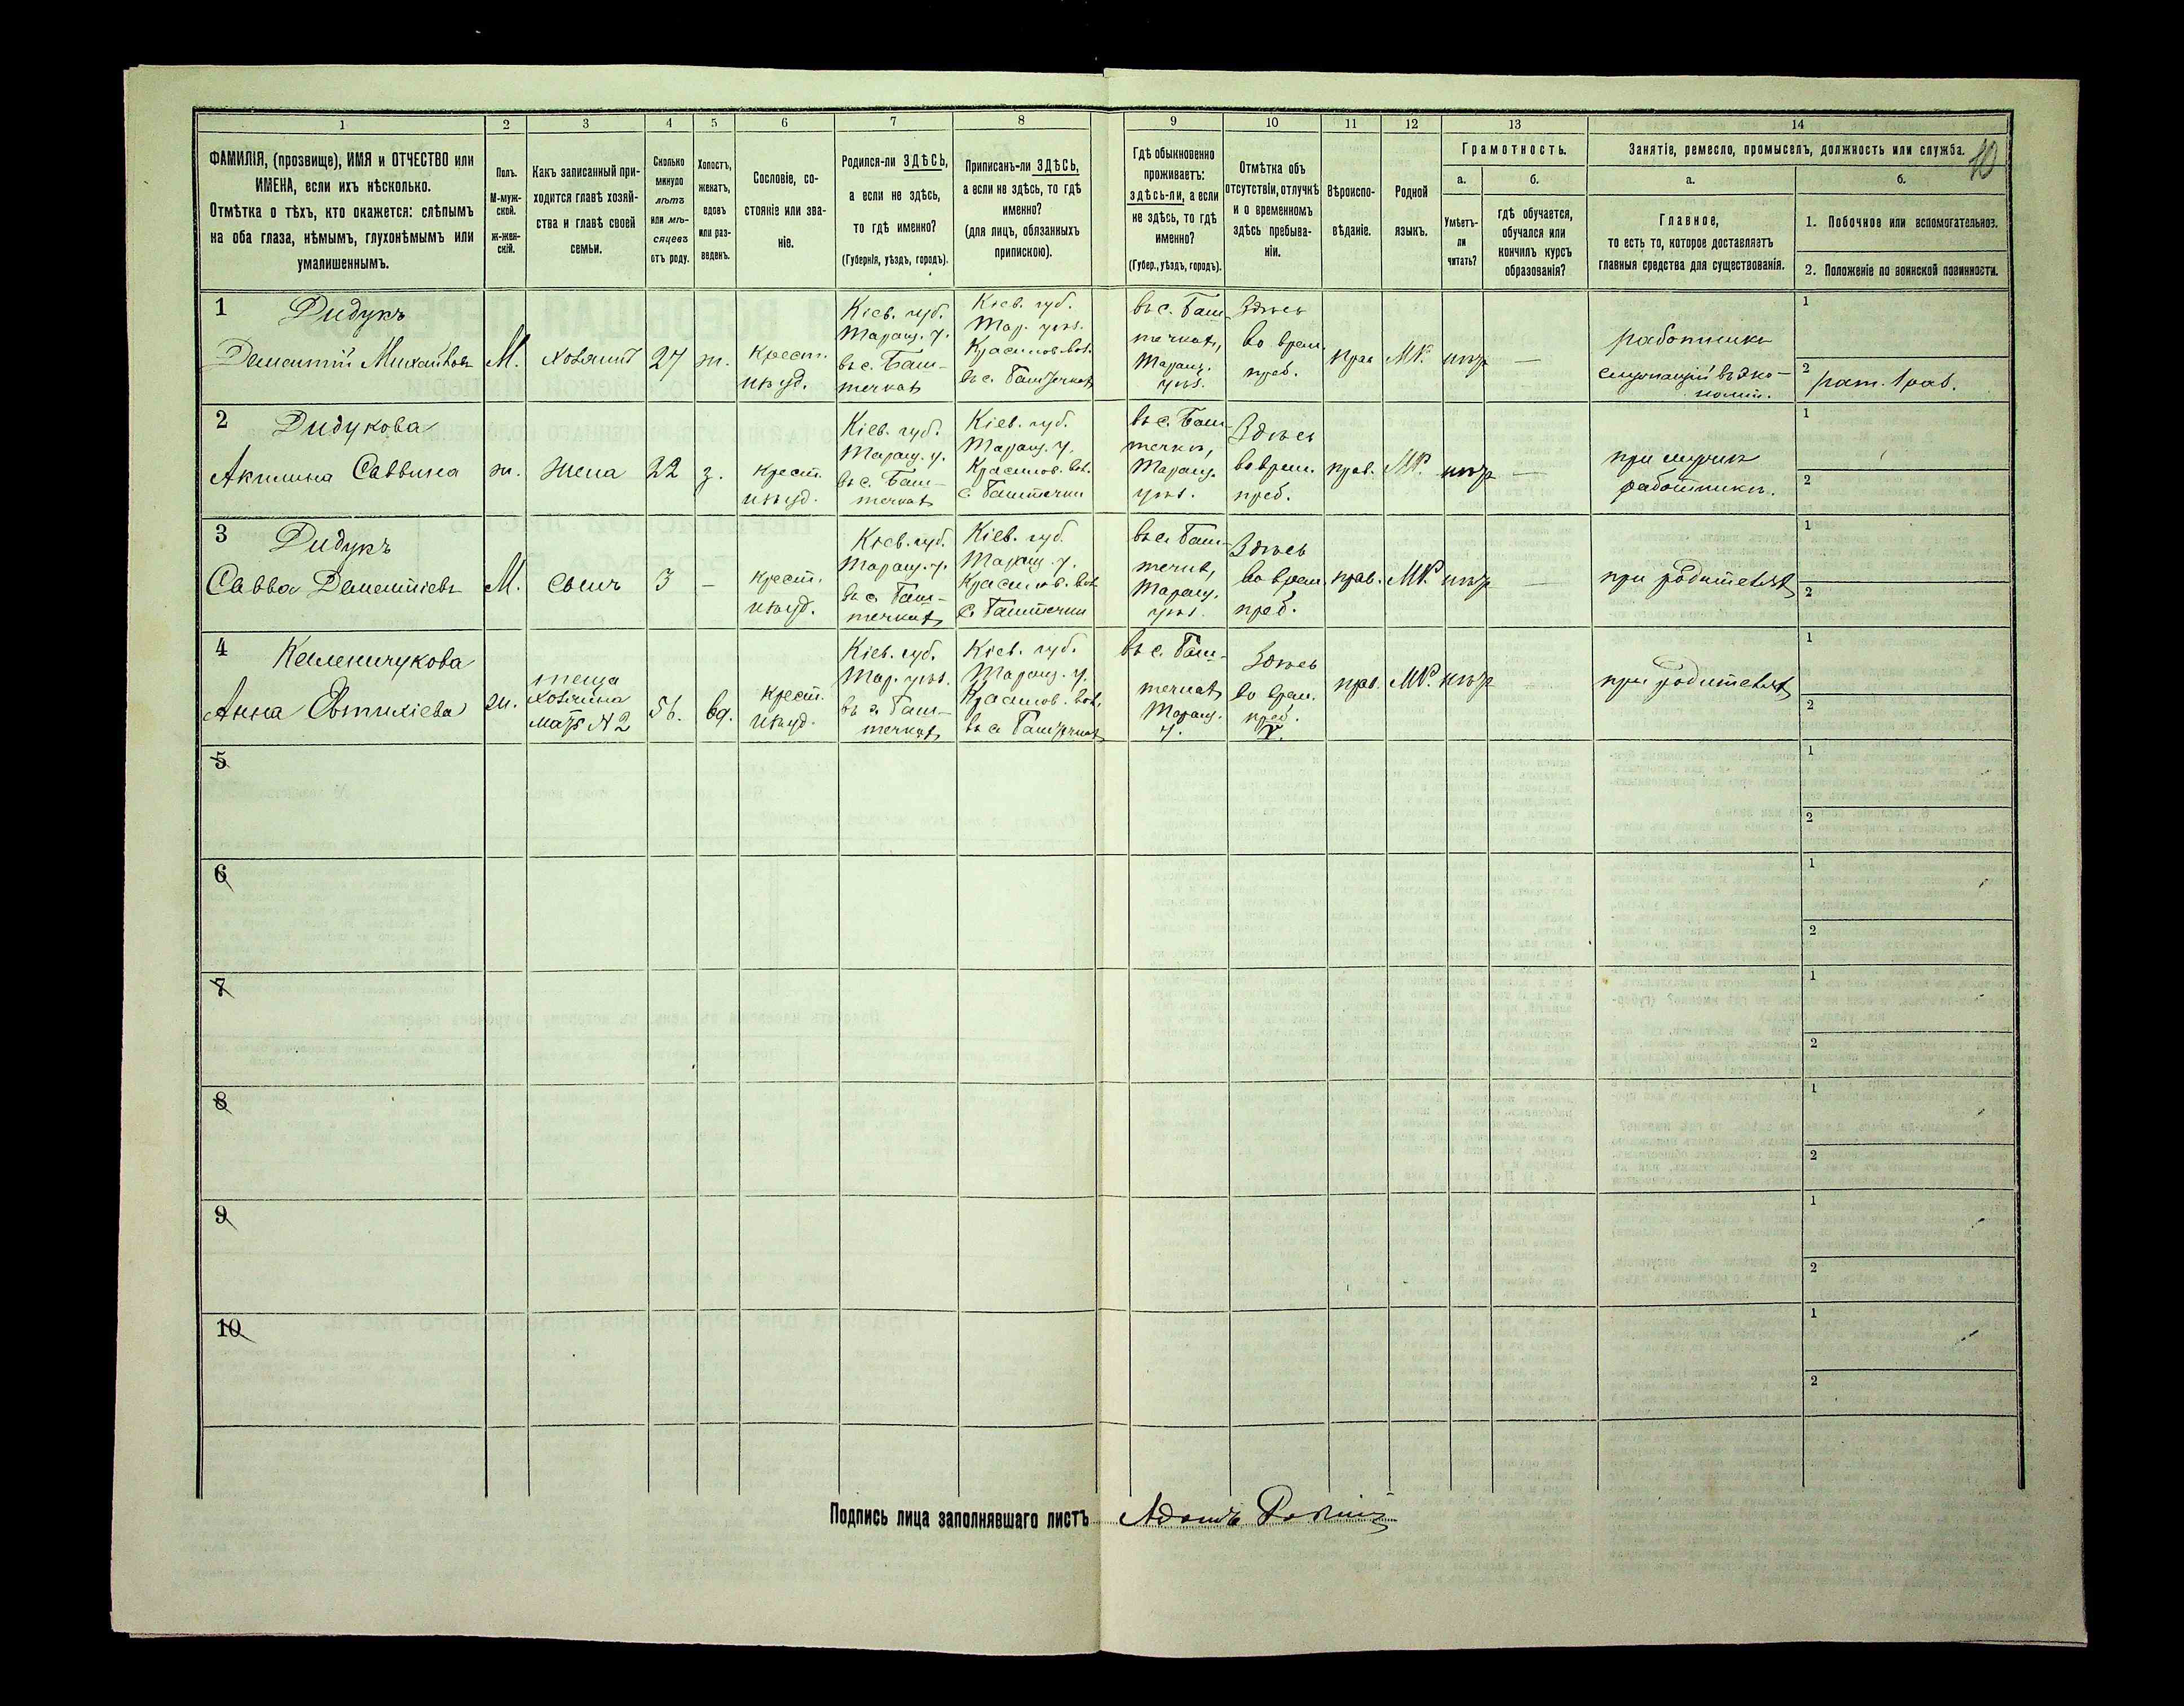 1 2 3 4 5 6 7 8 9 10 11 12 13 14
ФАМИЛІЯ, (прозвище), ИМЯ и ОТЧЕСТВО или
ИМЕНА, если ихъ нѣсколько.
Отмѣтка о тѣхъ, кто окажется: слѣпымъ
на оба глаза, нѣмымъ, глухонѣмымъ или
умалишеннымъ.
Полъ.
М-муж-
ской.
ж-жен-
скій.
Какъ записанный при-
ходится главѣ хозяй-
ства и главѣ своей
семьи.
Сколько
минуло
лѣтъ
или мѣ-
сяцевъ
отъ роду.
Холостъ,
женатъ,
вдовъ
или раз-
веденъ.
Сословіе, со-
стояніе или зва-
ніе.
Родился-ли ЗДѢСЬ,
а если не здѣсь,
то гдѣ именно?
(Губернія, уѣздъ, городъ).
Приписанъ-ли ЗДѢСЬ,
а если не здѣсь, то гдѣ
именно?
(для лицъ, обязанныхъ
припискою).
Гдѣ обыкновенно
проживаетъ:
здѣсь-ли, а если
не здѣсь, то гдѣ
именно?
(Губер., уѣздъ, городъ).
Отмѣтка объ
отсутствіи, отлучкѣ
и о временномъ
здѣсь пребыва-
ніи.
Вѣроиспо-
вѣданіе.
Родной
языкъ.
Грамотность.
а.
Умѣетъ-
ли
читать?
б.
гдѣ обучается,
обучался или
кончилъ курсъ
образованія?
Занятіе, ремесло, промыселъ, должность или служба.
10
а.
Главное,
то есть то, которое доставляетъ
главныя средства для существованія.
б.
1. Побочное или вспомогательное.
2. Положеніе по воинской повинности.
1
Дидукъ
Дементій Михайловъ
М.
хозяинъ
27
ж.
Крест.
Кіев. губ.
Таращ. у.
въ с. Баш-
течкахъ
Кіев. губ.
Тар. уѣз.
въ с. Баштечкахъ
въ с. Баш-
течкахъ,
Таращ.
уѣз.
Здѣсь
во врем.
преб.
прав
МР.
нѣтъ
—
работникъ
1
2
рат. 1 раз.
2
Дидукова
Акилина Саввина
ж.
жена
22
з.
Крест.
Кіев. губ.
Таращ. у.
въ с. Баш-
течкахъ
Кіев. губ.
Таращ. у.
с. Баштечки
въ с. Баш-
течки,
Таращ.
уѣз.
Здѣсь
во врем.
преб.
прав.
МР.
нѣтъ
—
при мужѣ
1
2
3
Дидукъ
Савва Дементіевъ
М.
сынъ
3
—
Крест.
Кіев. губ.
Таращ. у.
въ с. Баш-
течкахъ
Кіев. губ.
Таращ. у.
с. Баштечки
въ с. Баш-
Таращ.
уѣз.
Здѣсь
во врем.
преб.
прав.
МР.
нѣтъ
—
при родителяхъ
1
2
4
Анна
ж.
теща
хозяина
мать № 2
56.
вд.
Крест.
Кіев. губ.
Тар. уѣз.
въ с. Баш-
течкахъ
Кіев. губ.
Таращ. у.
въ с. Баштечкахъ
въ с. Баш-
течкахъ
Таращ.
у.
Здѣсь
во врем.
преб.
прав.
МР.
нѣтъ
—
при родителяхъ
1
2
5
1
2
6
1
2
7
1
2
8
1
2
9
1
2
10
1
2
Подпись лица заполнявшаго листъ Адамъ